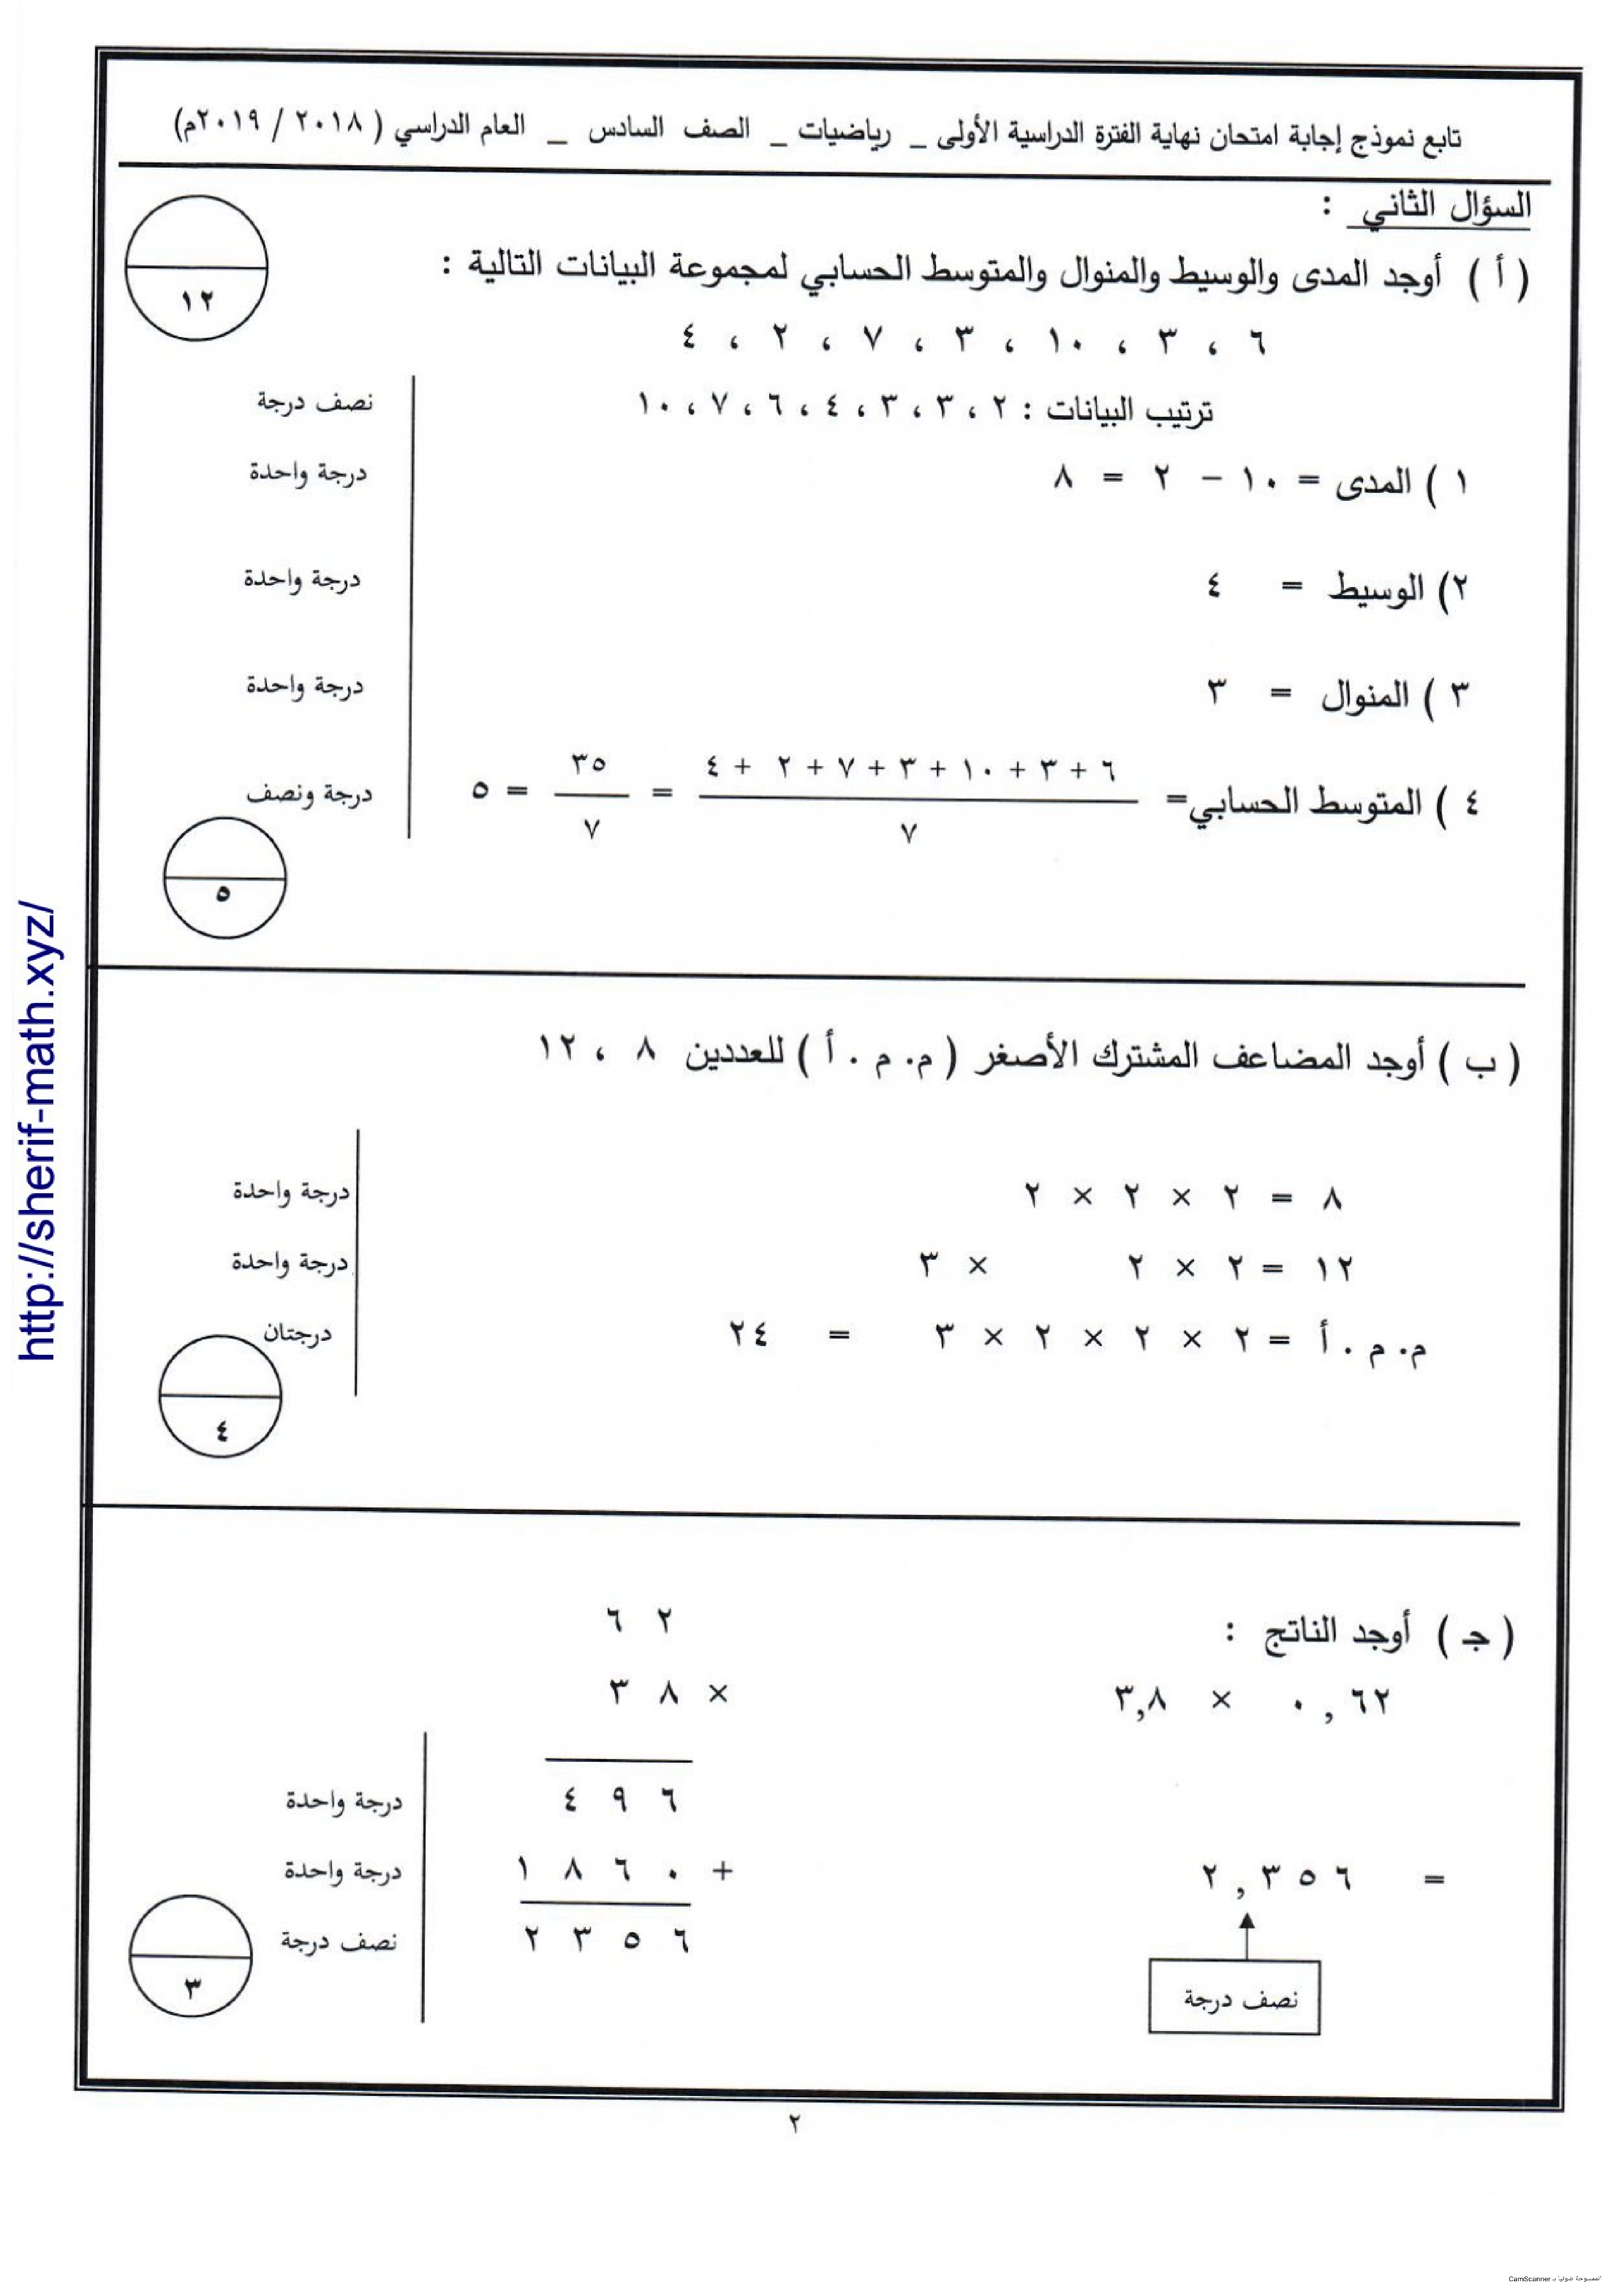 تابع نموذج إجابة امتحان نهاية الفترة الدراسية الأولى _ رياضيات _ الصف السادس _ العام الدراسي ( ٢٠١٨ / ٢٠١٩م)
السؤال الثاني :
١٢
( أ ) أوجد المدى والوسيط والمنوال والمتوسط الحسابي لمجموعة البيانات التالية :
٦ ، ٣ ، ١٠ ، ٣ ، ٧ ، ٢ ، ٤
ترتيب البيانات : ٢ ، ٣ ، ٣ ، ٤ ، ٦ ، ٧ ، ١٠ نصف درجة
١ ) المدى = ١٠ – ٢ = ٨ درجة واحدة
٢) الوسيط = ٤ درجة واحدة
٣ ) المنوال = ٣ درجة واحدة
٦ + ٣ + ١٠ + ٣ + ٧ + ٢ + ٤ ٣٥
٤ ) المتوسط الحسابي = = = ٥ درجة ونصف
٧ ٧
٥
( ب ) أوجد المضاعف المشترك الأصغر ( م. م . أ ) للعددين ٨ ، ١٢
٨ = ٢ × ٢ × ٢ درجة واحدة
١٢ = ٢ × ٢ × ٣ درجة واحدة
م. م . أ = ٢ × ٢ × ٢ × ٣ = ٢٤ درجتان
٤
( جـ ) أوجد الناتج : ٦ ٢
٠,٦٢ × ٣,٨ × ٣ ٨
٤ ٩ ٦ درجة واحدة
= ٢,٣٥٦ + ١ ٨ ٦ ٠ درجة واحدة
٢ ٣ ٥ ٦ نصف درجة
نصف درجة
٣
٢
http://sherif-math.xyz/
الممسوحة ضوئيا بـ CamScanner